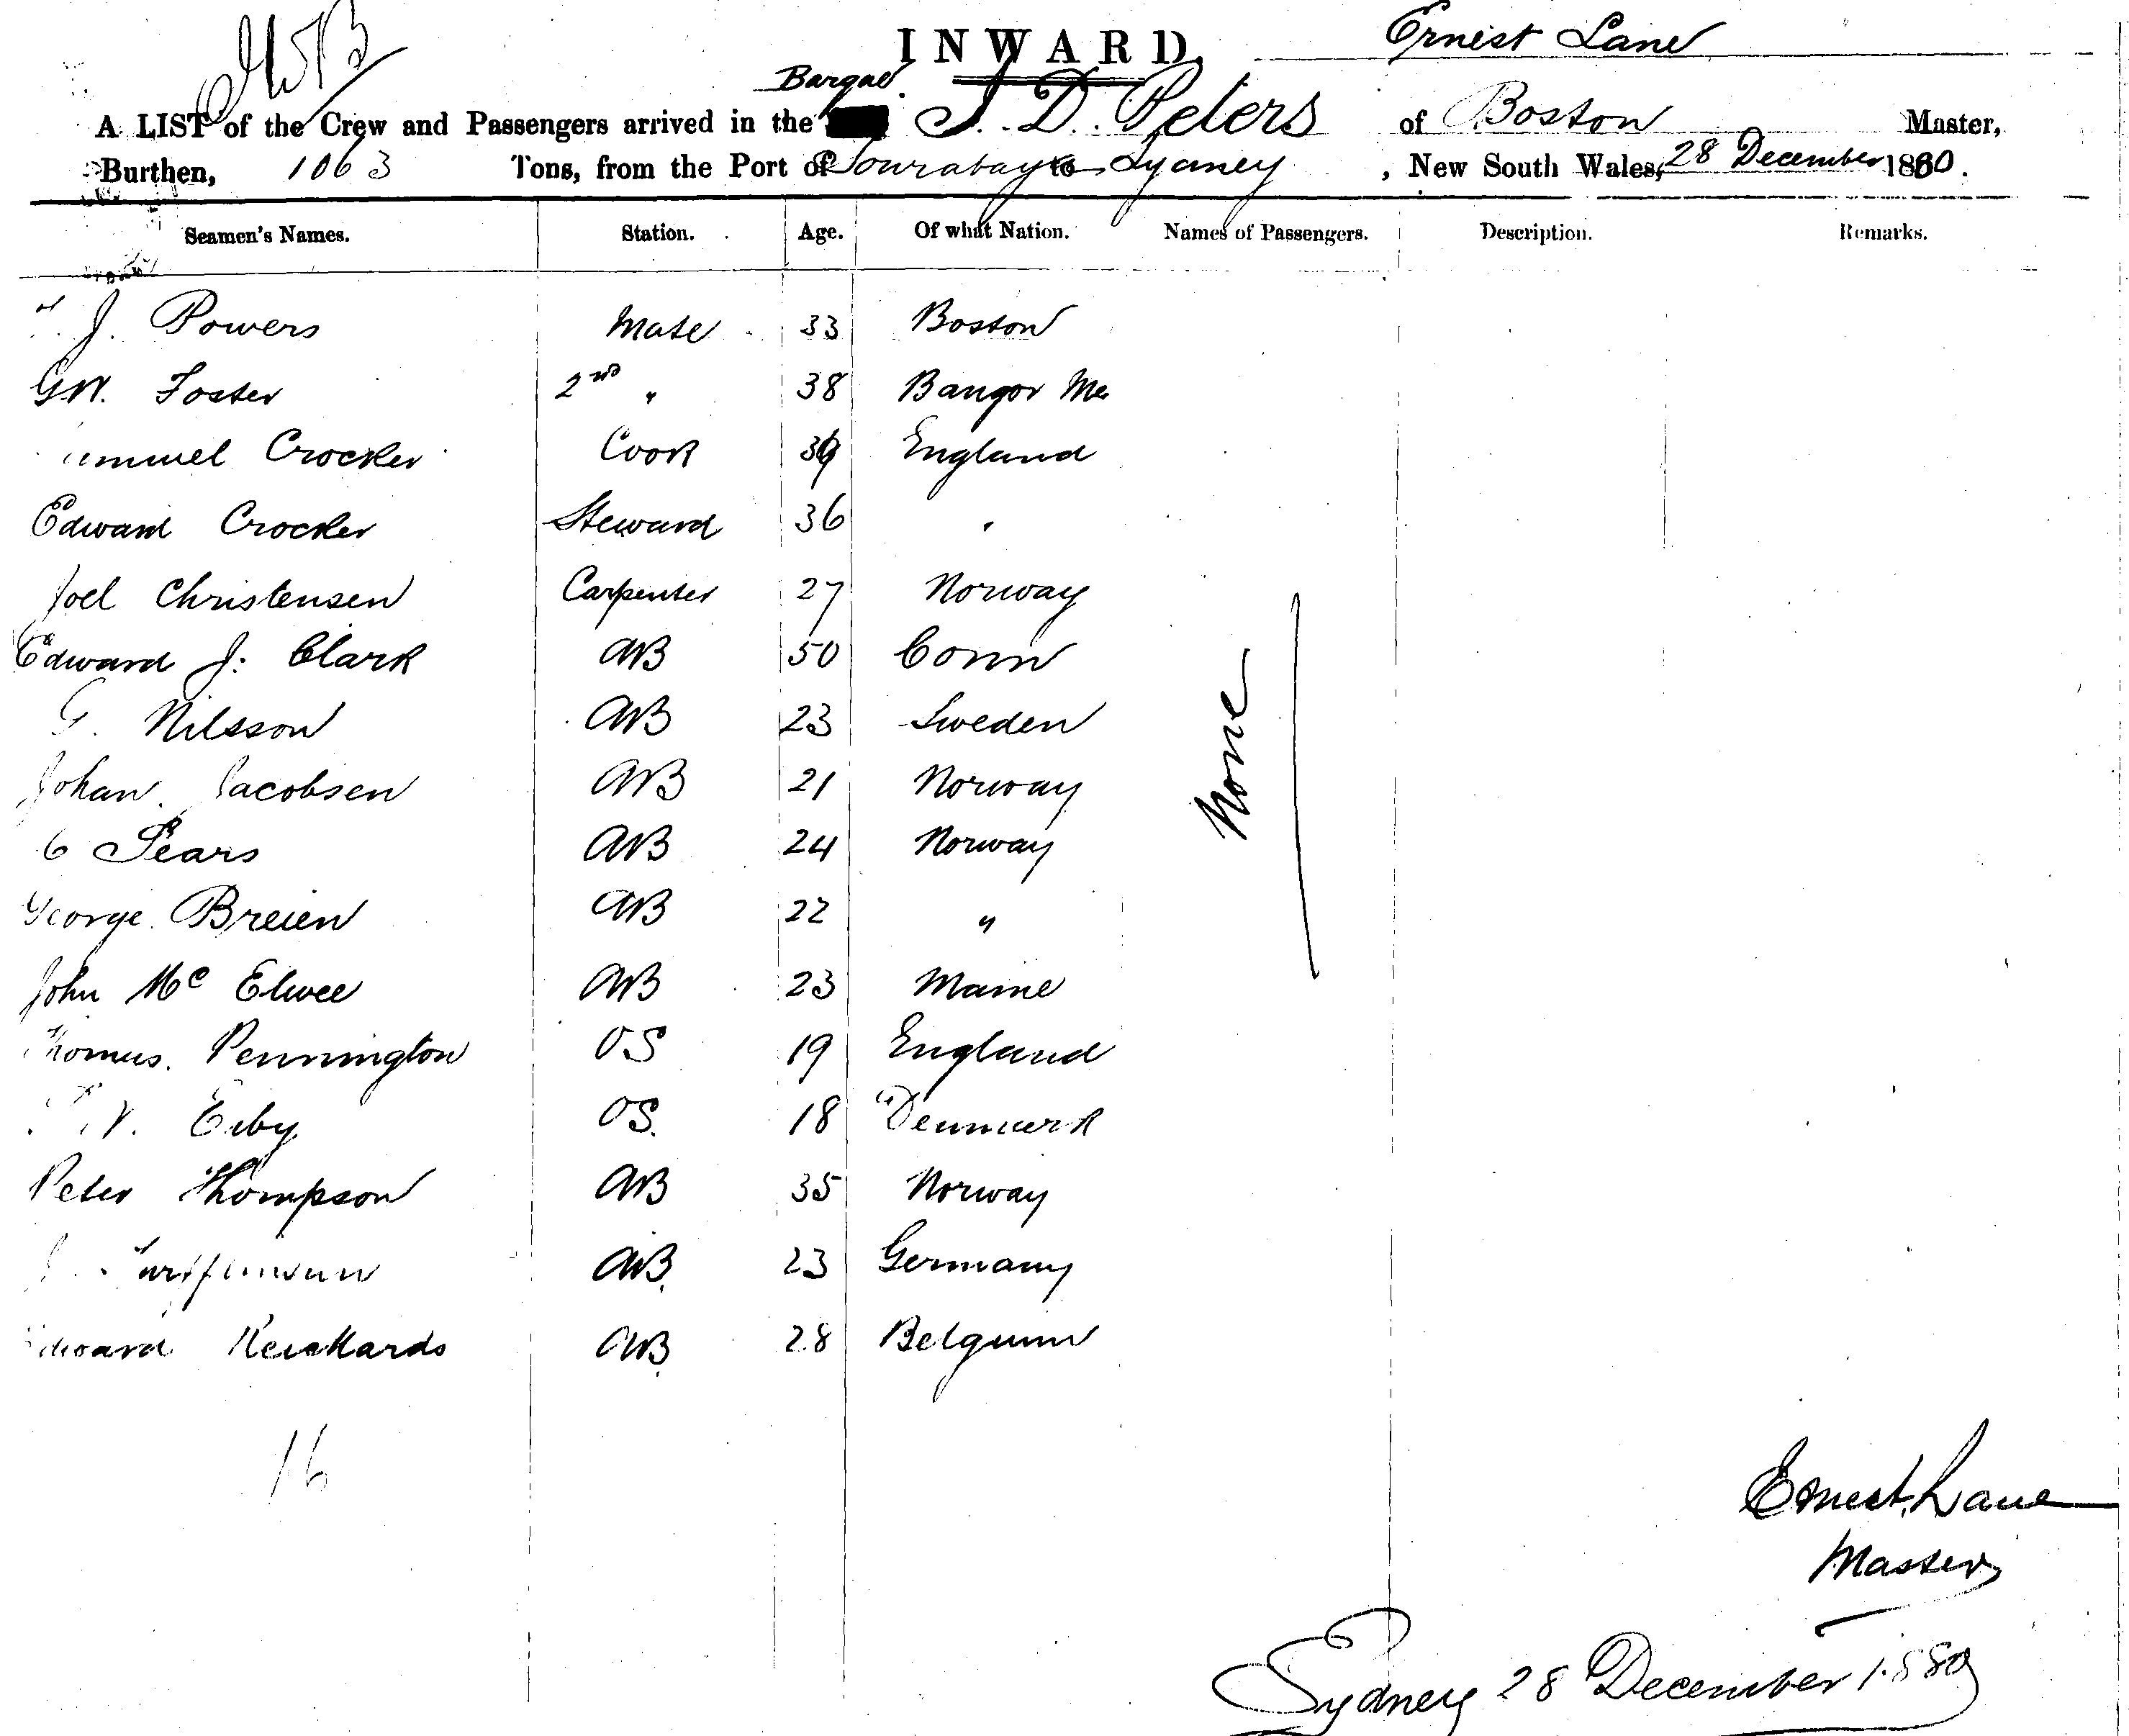 INWARD. Ernest Lane
Barque
A LIST of the Crew and Passengers arrived in the J. D. Peters of Boston Master,
Burthen, 1063 Tons, from the Port of Sourabaya to Sydney, New South Wales, 28 December 1880.
Seamen's Names. Station. Age. Of what Nation. Names of Passengers. Description. Remarks.
J. Powers Mate 33 Boston
G W. Foster 2nd " 38 Bangor Me
Crocker Cook 39 England
Edward Crocker Steward 36 "
Joel Christensen Carpenter 27 Norway
Edward J. Clark AB 50 Conn
G. Nilsson AB 23 Sweden
Johan Jacobsen AB 21 Norway
None
C Sears AB 24 Norway
George Breien AB 22 "
John Mc Elwee AB 23 Maine
Thomas. Pennington OS 19 England
OS. 18 Denmark
Peter Thompson AB 35 Norway
AB. 23 Germany
Edward AB. 28 Belguim
16
Ernest Lane
Master
Sydney 28 December 1880